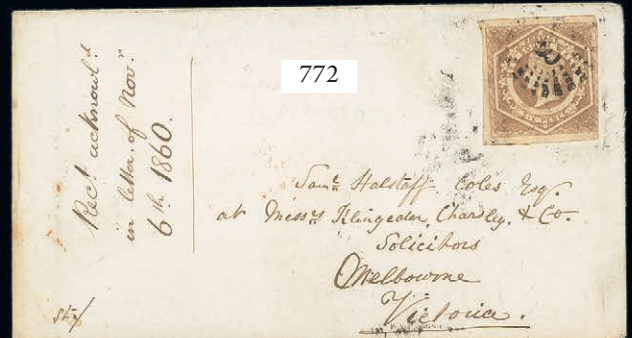 Rec.t acknowl.d
in letter of Nov.r
6th 1860.
772
Sam.l Halstaff Coles Esq.
at Mess.rs Klingender, Charsley, & Co.
Solicitors
Melbourne
Victoria.